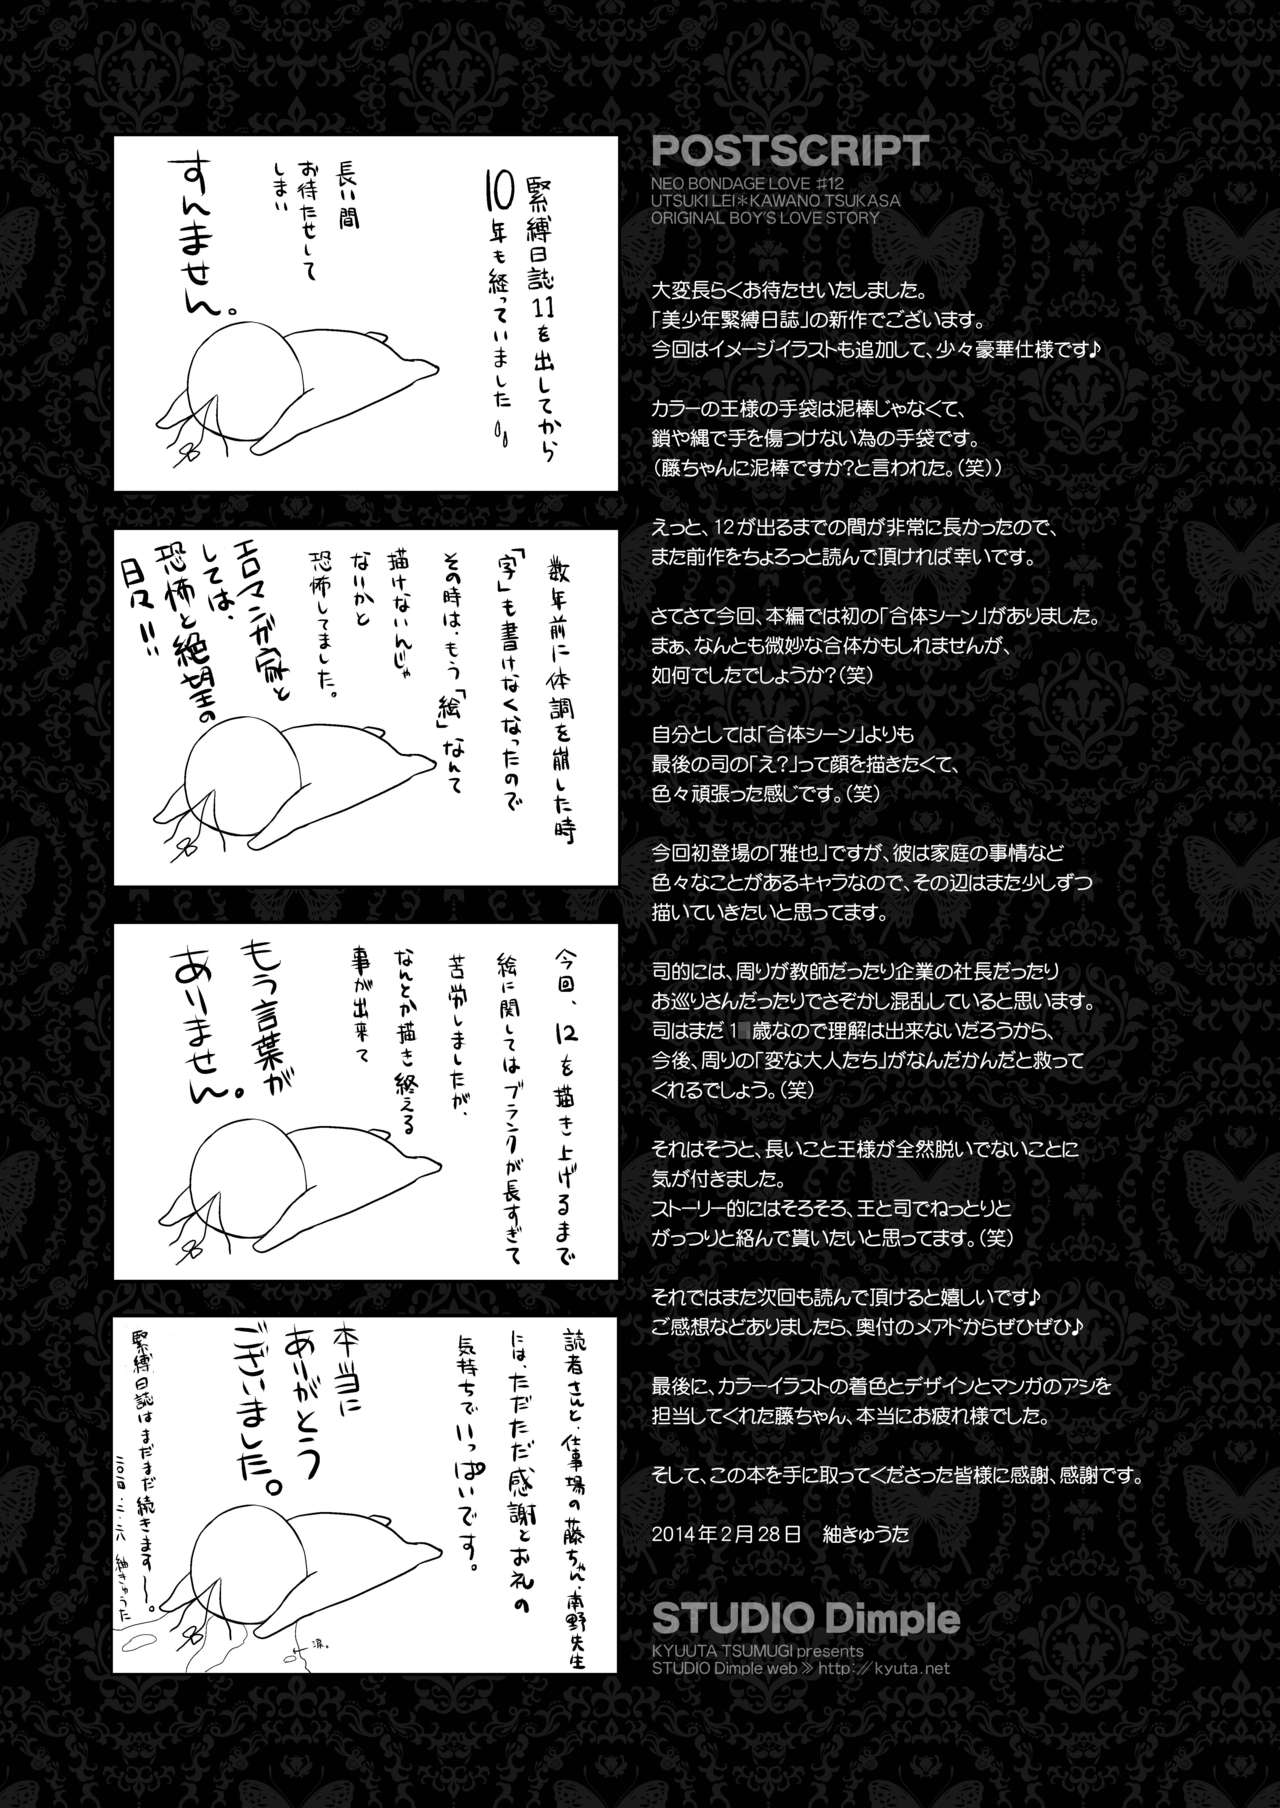 POSTSCRIPT
NEO BONDAGE LOVE #12
UTSUKI LEI＊KAWANO TSUKASA
ORIGINAL BOY'S LOVE STORY
大変長らくお待たせいたしました。
「美少年緊縛日誌」の新作でございます。
今回はイメージイラストも追加して、少々豪華仕様です♪
カラーの王様の手袋は泥棒じゃなくて、
鎖や縄で手を傷つけない為の手袋です。
（藤ちゃんに泥棒ですか？と言われた。（笑））
えっと、12が出るまでの間が非常に長かったので、
また前作をちょろっと読んで頂ければ幸いです。
さてさて今回、本編では初の「合体シーン」がありました。
まぁ、なんとも微妙な合体かもしれませんが、
如何でしたでしょうか？（笑）
自分としては「合体シーン」よりも
最後の司の「え？」って顔を描きたくて、
色々頑張った感じです。（笑）
今回初登場の「雅也」ですが、彼は家庭の事情など
色々なことがあるキャラなので、その辺はまた少しずつ
描いていきたいと思ってます。
司的には、周りが教師だったり企業の社長だったり
お巡りさんだったりでさぞかし混乱していると思います。
司はまだ1 歳なので理解は出来ないだろうから、
今後、周りの「変な大人たち」がなんだかんだと救って
くれるでしょう。（笑）
それはそうと、長いこと王様が全然脱いでないことに
気が付きました。
ストーリー的にはそろそろ、王と司でねっとりと
がっつりと絡んで貰いたいと思ってます。（笑）
それではまた次回も読んで頂けると嬉しいです♪
ご感想などありましたら、奥付のメアドからぜひぜひ♪
最後に、カラーイラストの着色とデザインとマンガのアシを
担当してくれた藤ちゃん、本当にお疲れ様でした。
そして、この本を手に取ってくださった皆様に感謝、感謝です。
2014年2月28日　紬きゅうた
STUDIO Dimple
KYUUTA TSUMUGI presents
STUDIO Dimple web≫http://kyuta.net
緊縛日誌11を出してから
10年も経っていました
長い間
お待たせして
しまい
すんません。
数年前に体調を崩した時
「字」も書けなくなったので
その時は、もう「絵」なんて
描けないんじゃ
ないかと
恐怖してました。
エロマンガ家と
しては、
恐怖と絶望の
日々!!
今回、12を描き上げるまで
絵に関してはブランクが長すぎて
苦労しましたが、
なんとか描き終える
事が出来て
もう言葉が
ありません。
読者さんと、仕事場の藤ちゃん、南野先生
には、ただただ感謝とお礼の
気持ちでいっぱいです。
本当に
ありがとう
ございました。
緊縛日誌はまだまだ続きます〜。
二〇一四・二・二八　紬きゅうた
←涙。